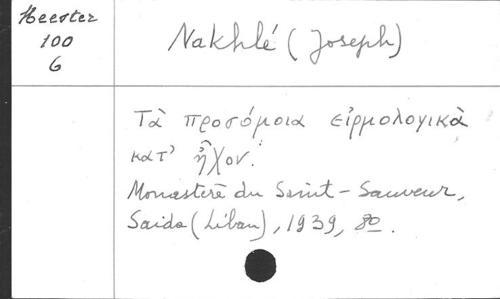 Heester
100
6
Nakhlé (Joseph)
Τὰ προσόμοια εἱρμολογικὰ
κατ' ἦχον.
Monastère du Saint-Sauveur,
Saida (Liban), 1939, 8º.